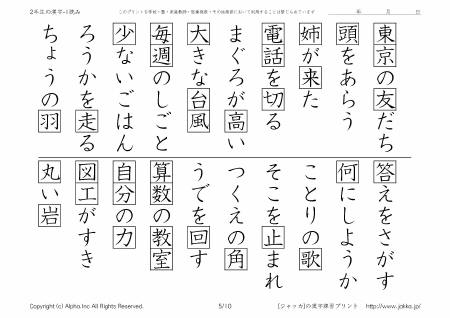 2年生の漢字-1読み
このプリントを学校・塾・家庭教師・医療機関・その他施設において利用することは禁じられています
年 月 日
東京の友だち
頭をあらう
姉が来た
電話を切る
まぐろが高い
大きな台風
毎週のしごと
少ないごはん
ろうかを走る
ちょうの羽
答えをさがす
何にしようか
ことりの歌
そこを止まれ
つくえの角
うでを回す
算数の教室
自分の力
図工がすき
丸い岩
Copyright (c) Alpha.Inc All Rights Reserved.
5/10
[ジャッカ]の漢字練習プリント http://www.jakka.jp/